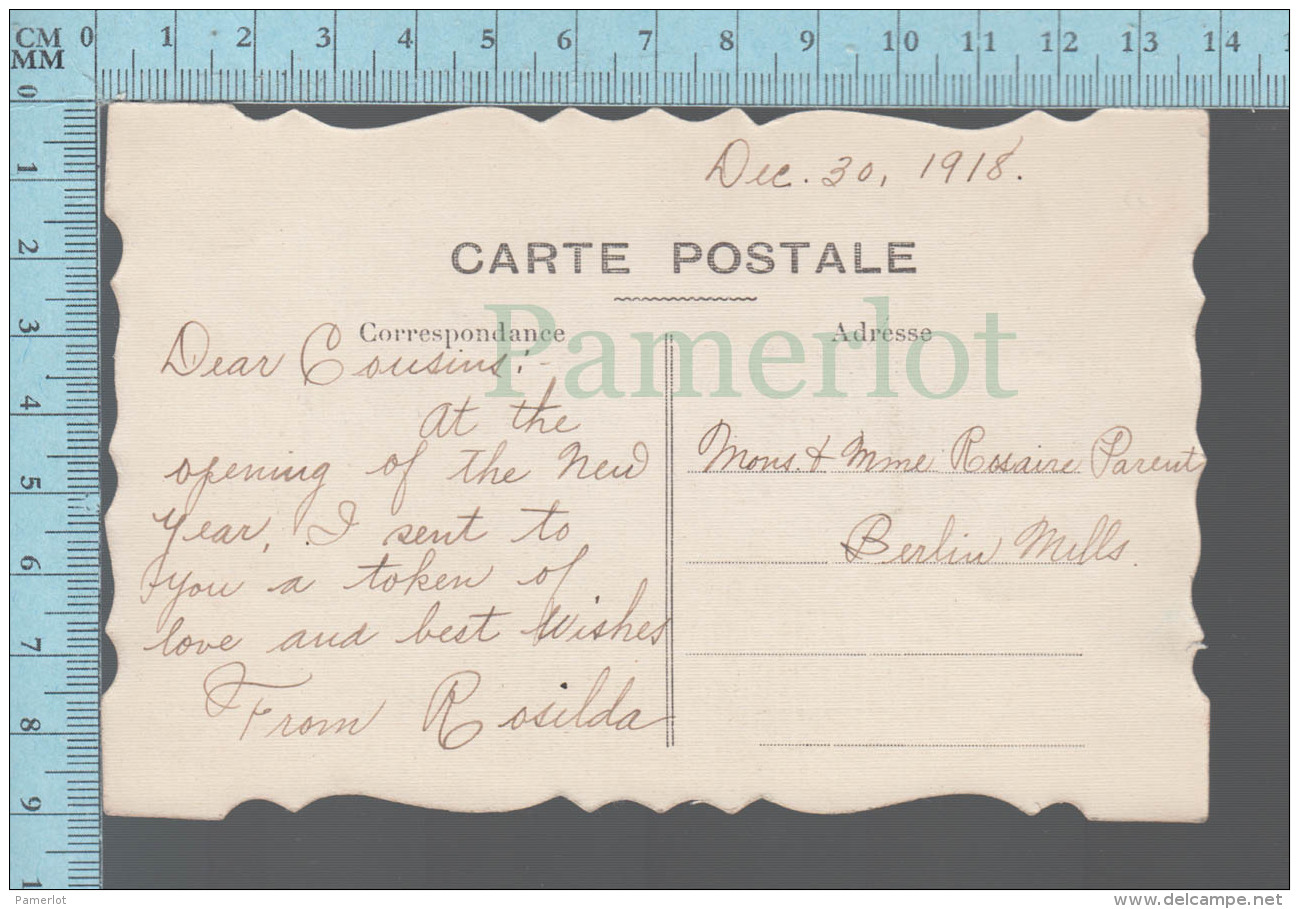 CM 0 1 2 3 4 5 6 7 8 9 10 11 12 13 14 1
MM
0 1 2 3 4 5 6 7 8 9 1
Dec. 30, 1918.
CARTE POSTALE
Correspondance
Adrésse
Pamerlot
Dear Cousins:-
At the
opening of the New
Year, I sent to
you a token of
love and best Wishes
From Rosilda
Mons. & Mme Rosaire Parent
Berlin Mills.
Pamerlot
www.delcampe.net